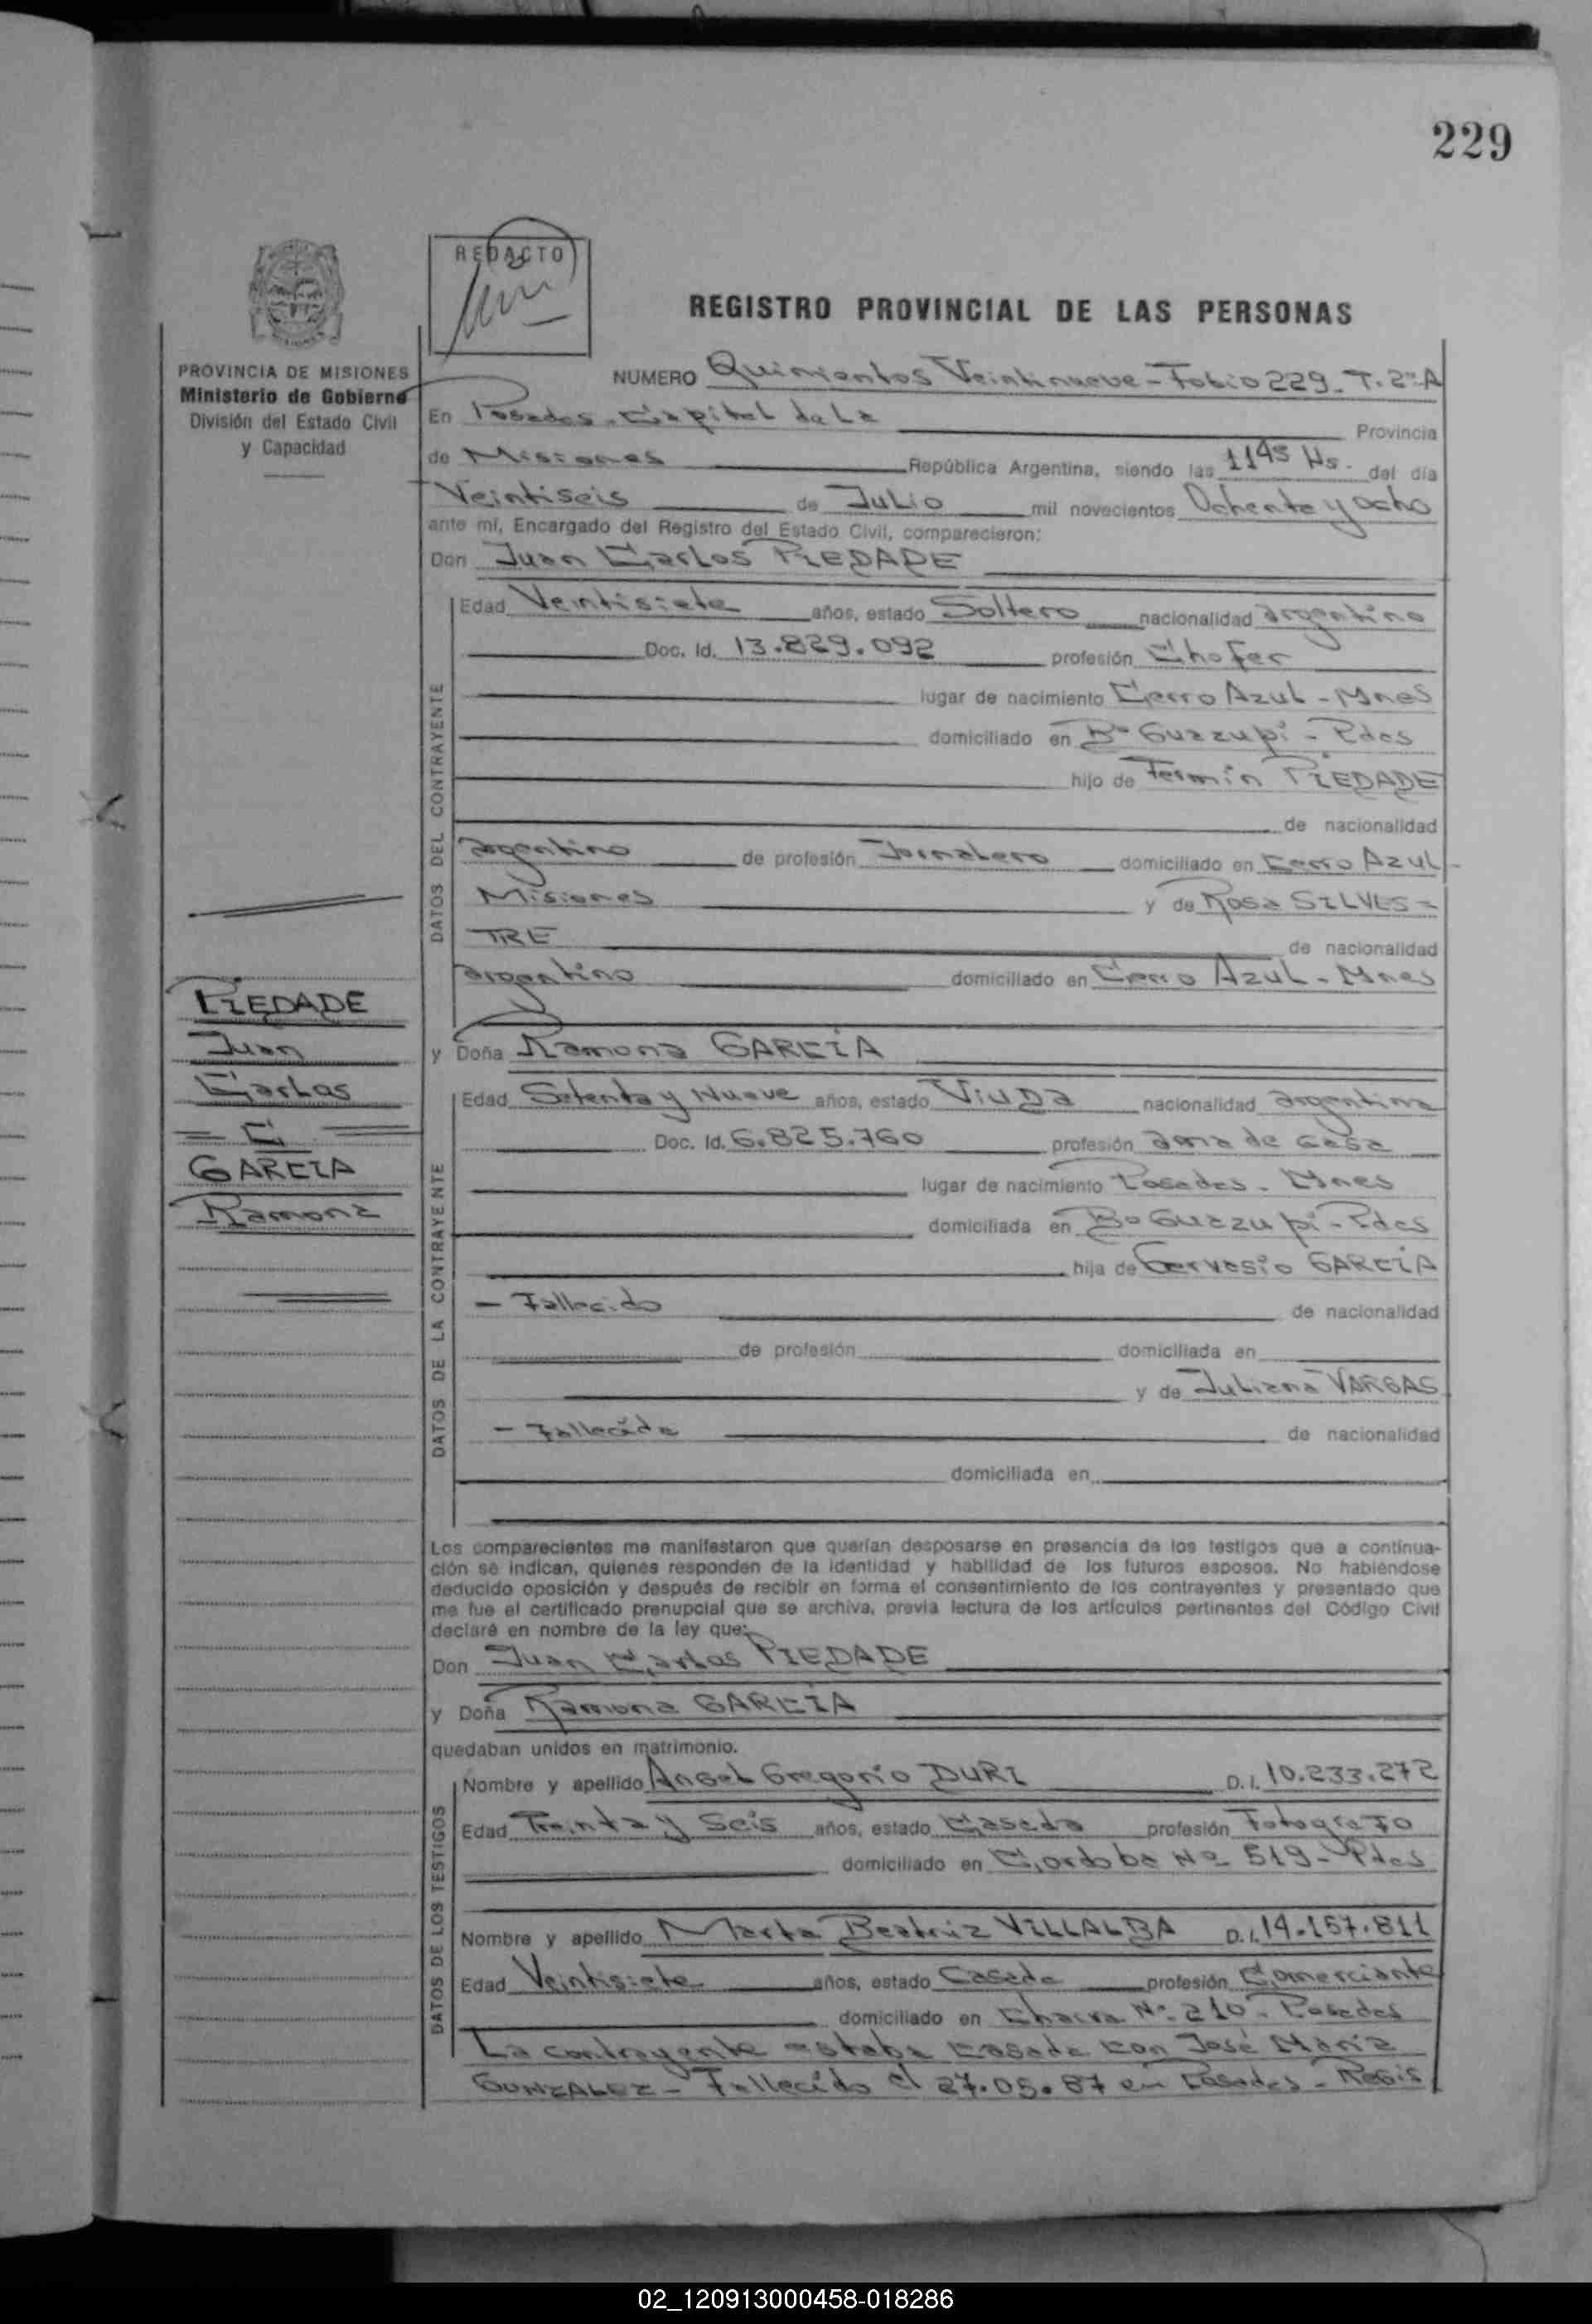 229
REDACTO
REGISTRO PROVINCIAL DE LAS PERSONAS
PROVINCIA DE MISIONES
Ministerio de Gobierno
División del Estado Civil
y Capacidad
NUMERO Quinientos Veintinueve - Folio 229 - T. 2º A
En Posadas - Capital de La Provincia
de Misiones República Argentina, siendo las 11 45 Hs. del día
Veintiseis de Julio mil novecientos Ochenta y ocho
ante mí, Encargado del Registro del Estado Civil, comparecieron:
Don Juan Carlos PIEDADE
DATOS DEL CONTRAYENTE
Edad Veintisiete años, estado Soltero nacionalidad argentino
Doc. Id. 13.829.092 profesión Chofer
lugar de nacimiento Cerro Azul - Mnes
domiciliado en Bº Guazupi - Pdas
hijo de Fermin PIEDADE
de nacionalidad
argentino de profesión Jornalero domiciliado en Cerro Azul -
Misiones y de Rosa SILVES=
TRE de nacionalidad
argentino domiciliado en Cerro Azul - Mnes
PIEDADE
Juan
Carlos
C
GARCIA
Ramona
y Doña Ramona GARCIA
DATOS DE LA CONTRAYENTE
Edad Setenta y Nueve años, estado Viuda nacionalidad argentina
Doc. Id. 6.825.760 profesión ama de casa
lugar de nacimiento Posadas - Mnes
domiciliada en Bº Guazupi - Pdas
hija de Gervasio GARCIA
- Fallecido de nacionalidad
de profesión domiciliada en
y de Juliana VARGAS
- Fallecida de nacionalidad
domiciliada en
Los comparecientes me manifestaron que querían desposarse en presencia de los testigos que a continua-
ción se indican, quienes responden de la identidad y habilidad de los futuros esposos. No habiéndose
deducido oposición y después de recibir en forma el consentimiento de los contrayentes y presentado que
me fue el certificado prenupcial que se archiva, previa lectura de los artículos pertinentes del Código Civil
declaré en nombre de la ley que:
Don Juan Carlos PIEDADE
y Doña Ramona GARCIA
quedaban unidos en matrimonio.
DATOS DE LOS TESTIGOS
Nombre y apellido Angel Gregorio DURI D.I. 10.233.272
Edad Treinta y Seis años, estado Casado profesión Fotografo
domiciliado en Cordoba Nº 519 - Pdas
Nombre y apellido Marta Beatriz VILLALBA D.I. 14.157.811
Edad Veintisiete años, estado Casada profesión Comerciante
domiciliado en Chacra Nº 210 - Posadas
La contrayente estaba casada con José Maria
GONZALEZ - Fallecido el 27.05.87 en Posadas - Regis
02_120913000458-018286